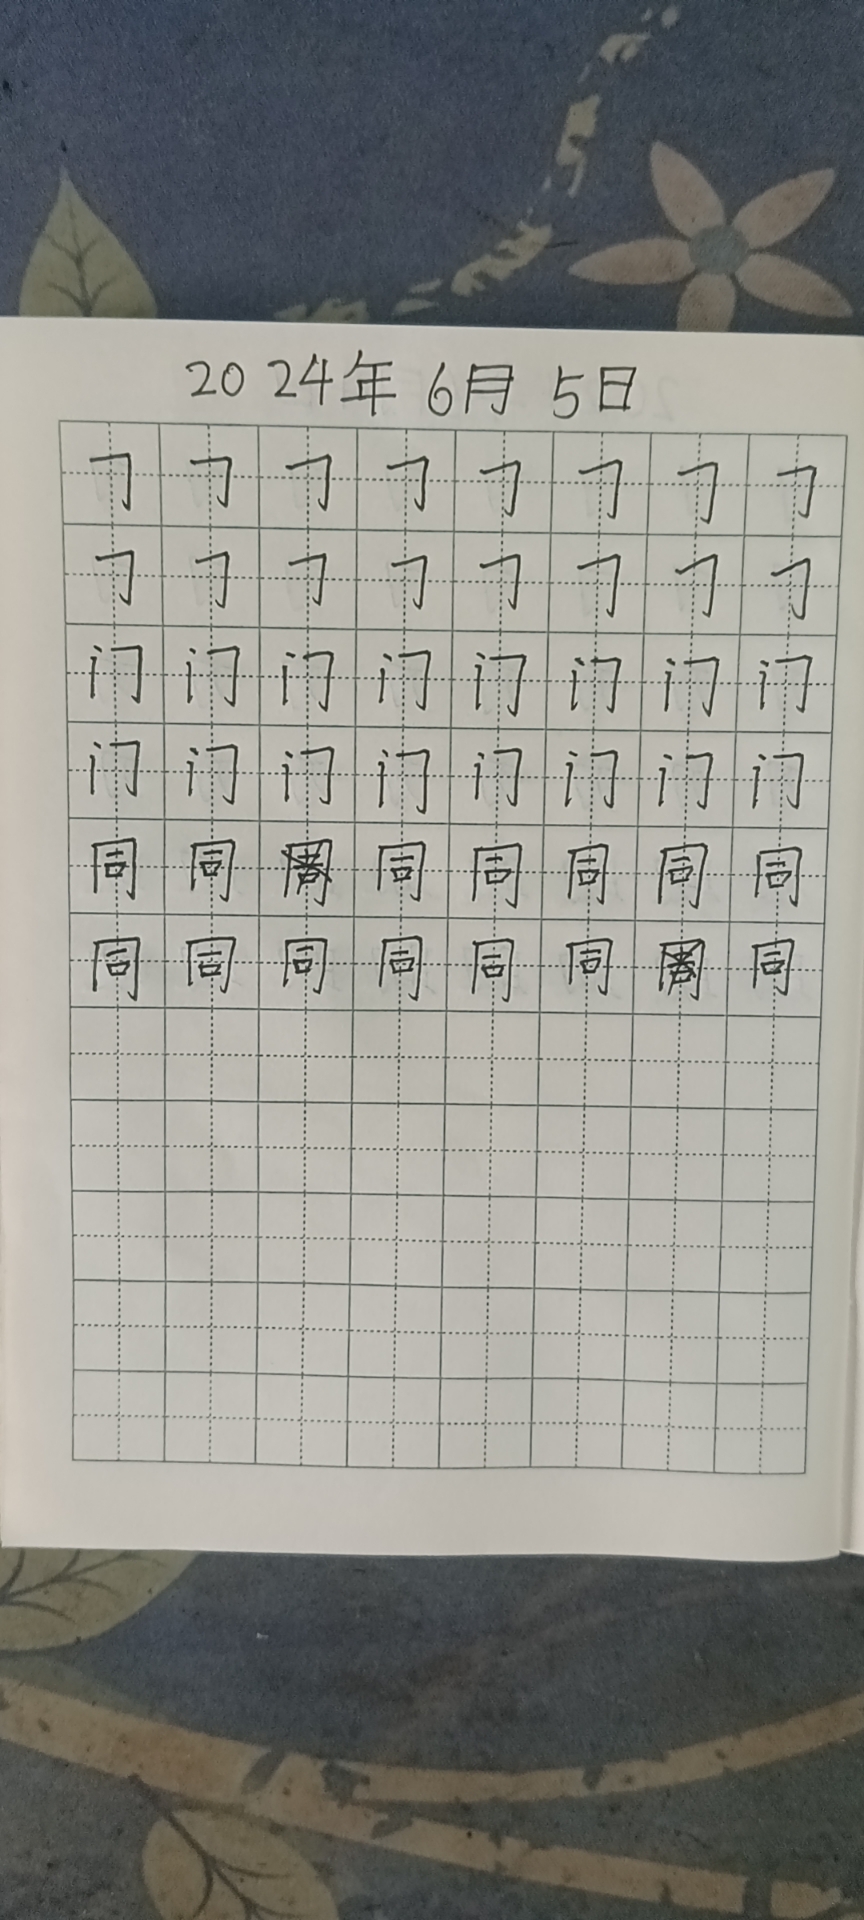 2024年 6月 5日
𠃌 𠃌 𠃌 𠃌 𠃌 𠃌 𠃌 𠃌
𠃌 𠃌 𠃌 𠃌 𠃌 𠃌 𠃌 𠃌
门 门 门 门 门 门 门 门
门 门 门 门 门 门 门 门
同 同 同 同 同 同 同
同 同 同 同 同 同 同